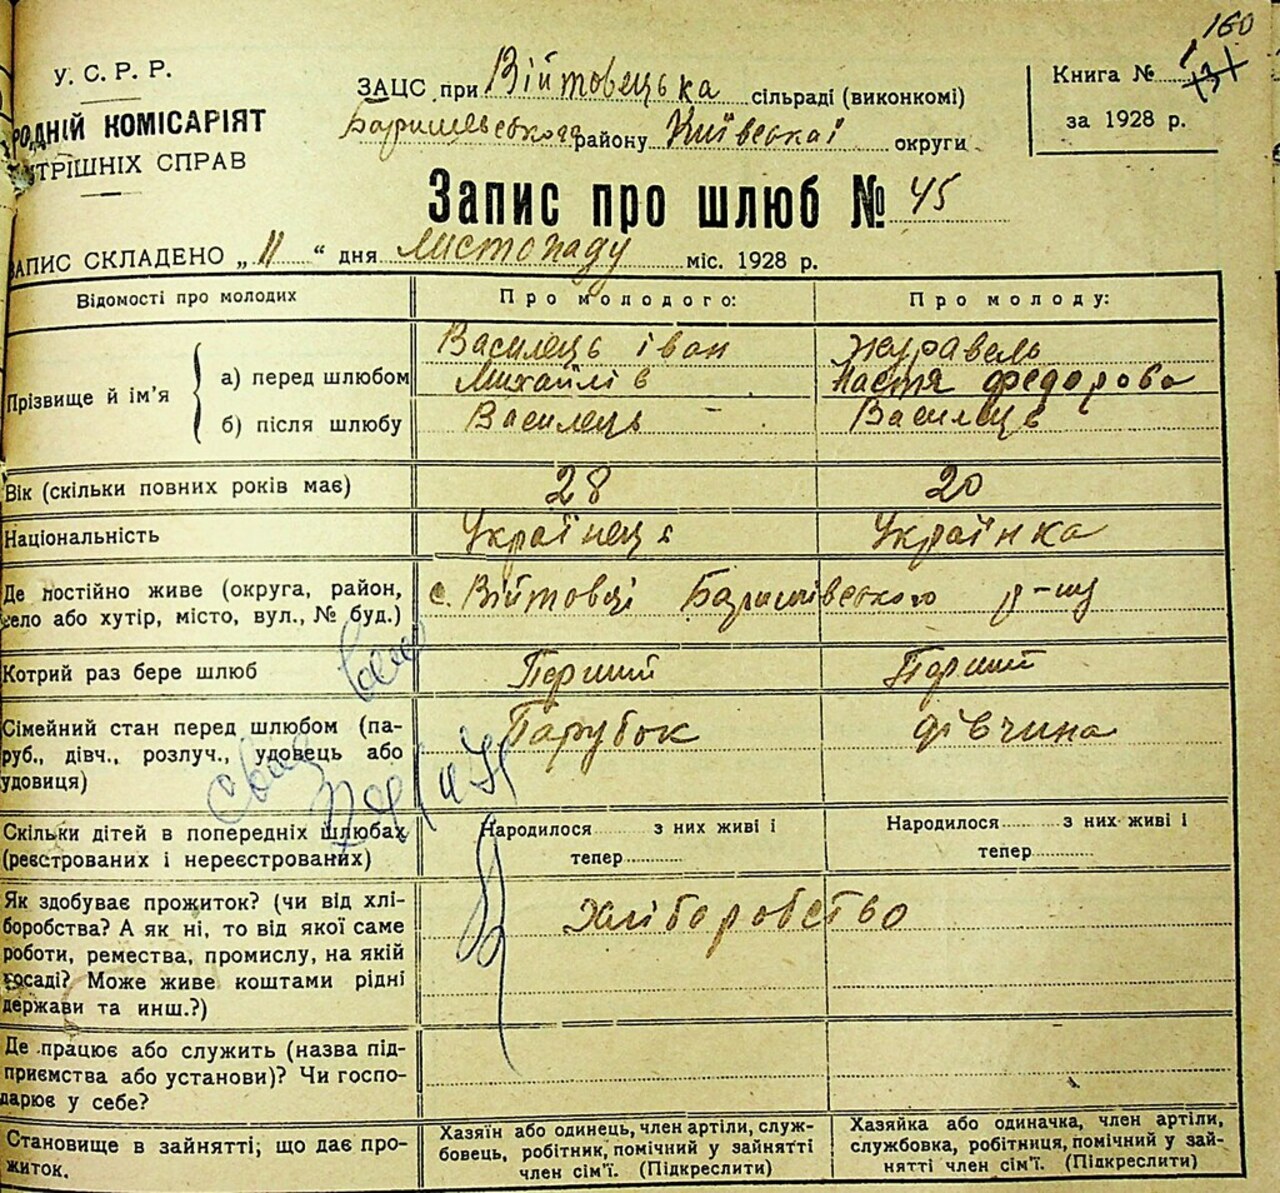 160
У. С. Р. Р.
РОДНІЙ КОМІСАРІЯТ
ТРІШНІХ СПРАВ
ЗАЦС при Війтовецька сільраді (виконкомі)
Баришевського району Київської округи
Книга № 1
за 1928 р.
Запис про шлюб № 45
ЗАПИС СКЛАДЕНО „ 11 “ дня листопаду міс. 1928 р.
Відомості про молодих
Про молодого:
Про молоду:
Прізвище й ім’я
а) перед шлюбом
Василець іван
Михайлів
Журавель
Настя федорова
б) після шлюбу
Василець
Василець
Вік (скільки повних років має)
28
20
Національність
Українець
Українка
Де постійно живе (округа, район,
село або хутір, місто, вул., № буд.)
с. Війтовці Баришівського р-ну
Котрий раз бере шлюб
Перший
Перший
Сімейний стан перед шлюбом (па-
руб., дівч., розлуч., удовець або
удовиця)
Парубок
дівчина
Скільки дітей в попередніх шлюбах
(реєстрованих і нереєстрованих)
Народилося з них живі і
тепер
Народилося з них живі і
тепер
Як здобуває прожиток? (чи від хлі-
боробства? А як ні, то від якої саме
роботи, ремества, промислу, на якій
посаді? Може живе коштами рідні
держави та инш.?)
Хліборобство
Де працює або служить (назва під-
приємства або установи)? Чи госпо-
дарює у себе?
Становище в зайнятті; що дає про-
житок.
Хазяїн або одинець, член артілі, служ-
бовець, робітник, помічний у зайнятті
член сім’ї. (Підкреслити)
Хазяйка або одиначка, член артіли,
службовка, робітниця, помічний у зай-
нятті член сім’ї. (Підкреслити)